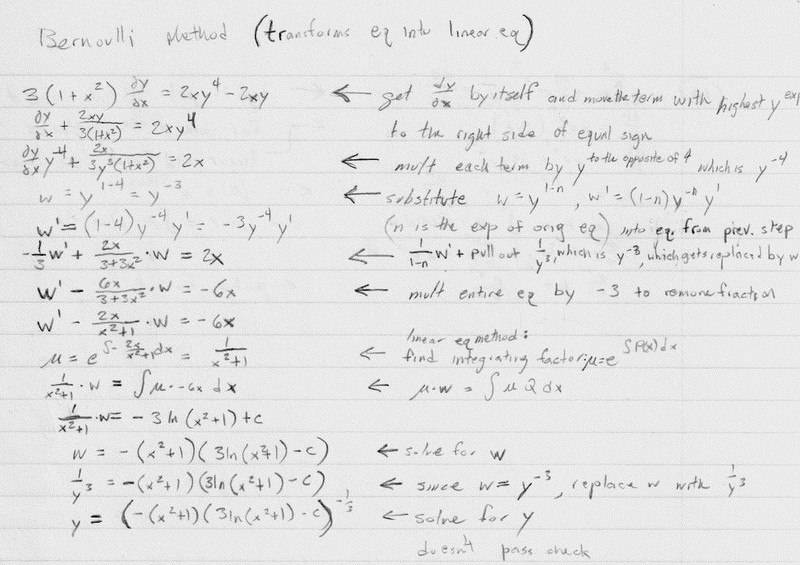 Bernoulli Method (transforms eq into linear eq)
3(1+x²) ∂y/∂x = 2xy⁴ - 2xy ← get dy/∂x by itself and move the term with highest y exp
∂y/∂x + 2xy/3(1+x²) = 2xy⁴ to the right side of equal sign
∂y/∂x y⁻⁴ + 2x/3y³(1+x²) = 2x ← mult each term by y to the opposite of 4 which is y⁻⁴
w = y¹⁻⁴ = y⁻³ ← substitute w = y¹⁻ⁿ, w' = (1-n) y⁻ⁿ y'
w' = (1-4) y⁻⁴ y' = -3y⁻⁴ y' (n is the exp of orig eq) into eq. from prev. step
-1/3 w' + 2x/3+3x² · w = 2x ← 1/1-n w' + pull out 1/y³, which is y⁻³, which gets replaced by w
w' - 6x/3+3x² · w = -6x ← mult entire eq by -3 to remove fraction
w' - 2x/x²+1 · w = -6x
linear eq method:
μ = e^∫-2x/x²+1 dx = 1/x²+1 ← find integrating factor: μ = e^∫P(x)dx
1/x²+1 · w = ∫ μ · -6x dx ← μ·w = ∫ μ Q dx
1/x²+1 · w = -3 ln(x²+1) + c
w = -(x²+1)(3ln(x²+1) - c) ← solve for w
1/y³ = -(x²+1)(3ln(x²+1) - c) ← since w = y⁻³, replace w with 1/y³
y = (-(x²+1)(3ln(x²+1) - c))^-1/3 ← solve for y
doesn't pass check